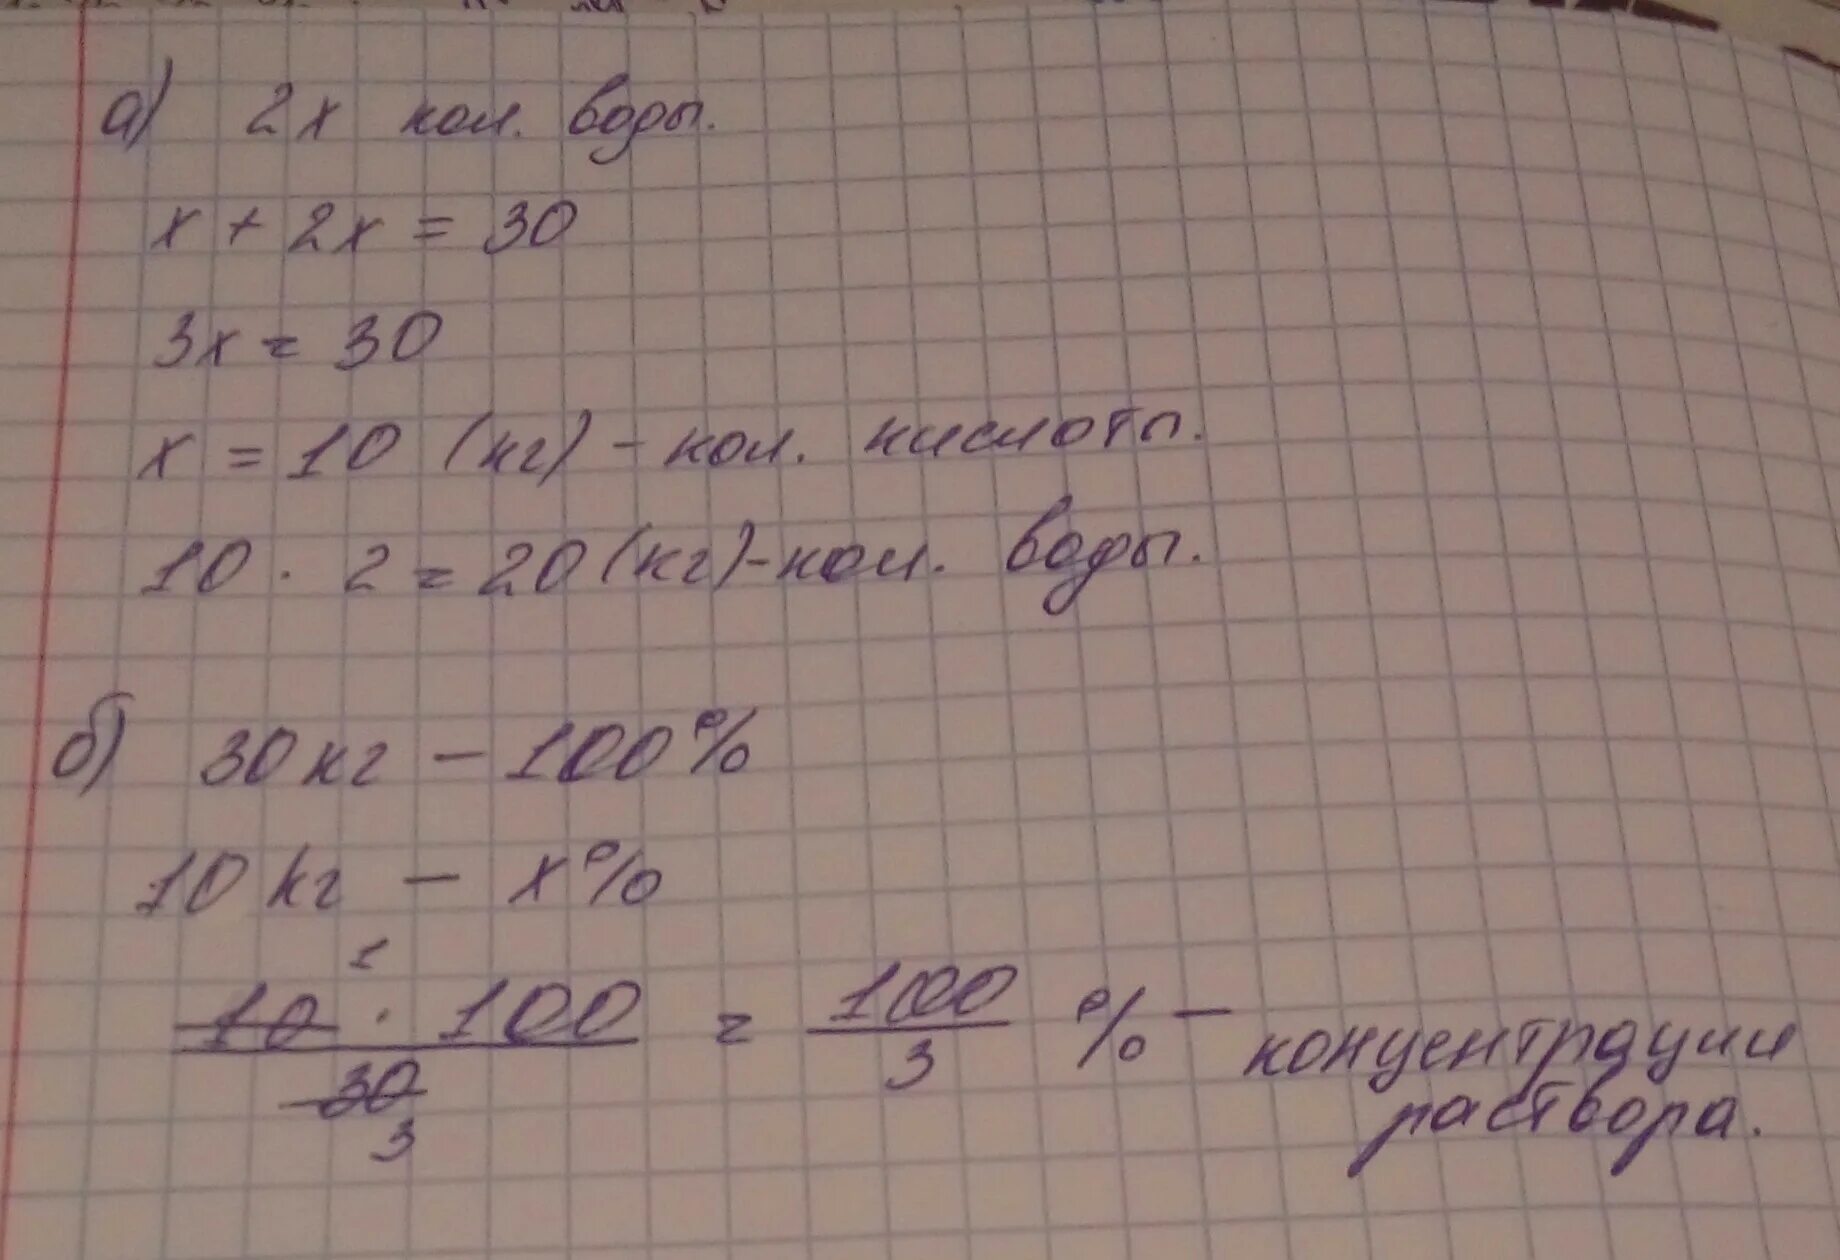 а) 2x кол. воды.
x + 2x = 30
3x = 30
x = 10 (кг) - кол. кислоты.
10 · 2 = 20 (кг) - кол. воды.
б) 30 кг - 100%
10 кг - x%
1
10 · 100 = 100 % - концентрации
30 3 раствора.
3